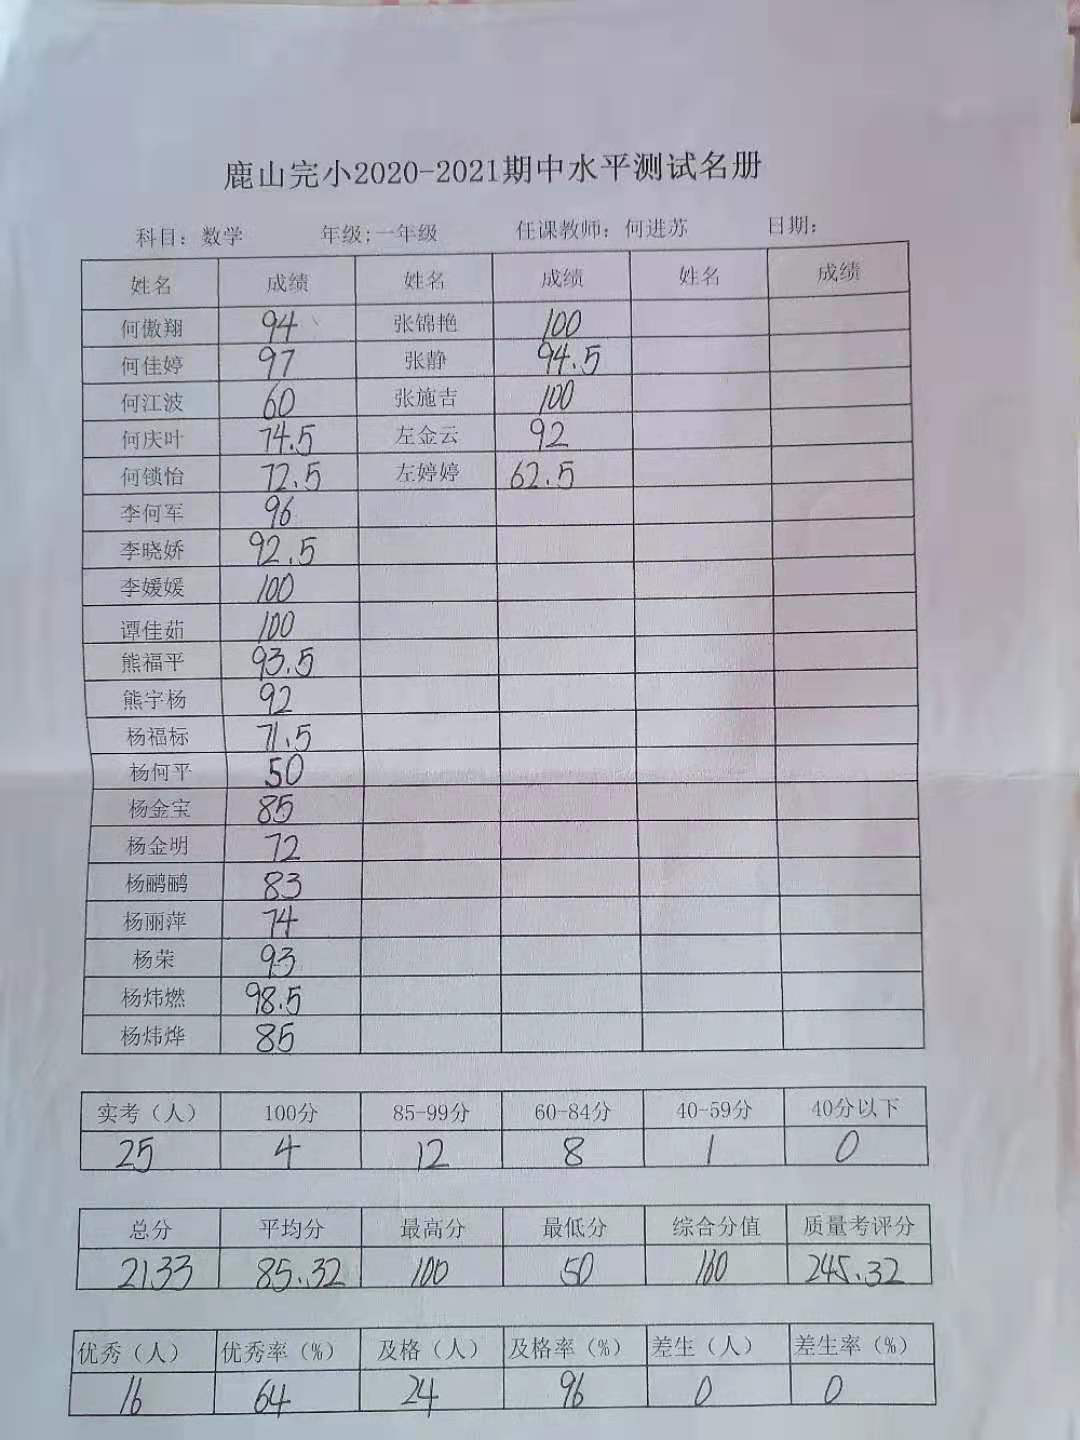 鹿山完小2020-2021期中水平测试名册
科目：数学 年级;一年级 任课教师：何进苏 日期：
姓名 成绩 姓名 成绩 姓名 成绩
何傲翔 94 张锦艳 100
何佳婷 97 张静 94.5
何江波 60 张施吉 100
何庆叶 74.5 左金云 92
何锁怡 72.5 左婷婷 62.5
李何军 96
李晓娇 92.5
李媛媛 100
谭佳茹 100
熊福平 93.5
熊宇杨 92
杨福标 71.5
杨何平 50
杨金宝 85
杨金明 72
杨鹂鹂 83
杨丽萍 74
杨荣 93
杨炜燃 98.5
杨炜烨 85
实考（人） 100分 85-99分 60-84分 40-59分 40分以下
25 4 12 8 1 0
总分 平均分 最高分 最低分 综合分值 质量考评分
2133 85.32 100 50 160 245.32
优秀（人） 优秀率（%） 及格（人） 及格率（%） 差生（人） 差生率（%）
16 64 24 96 0 0